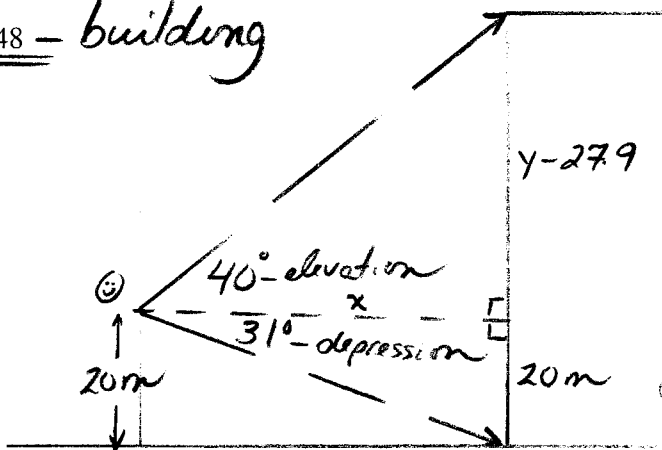 48 – building
y-27.9
40°-elevation
x
31°-depression
20m
20m